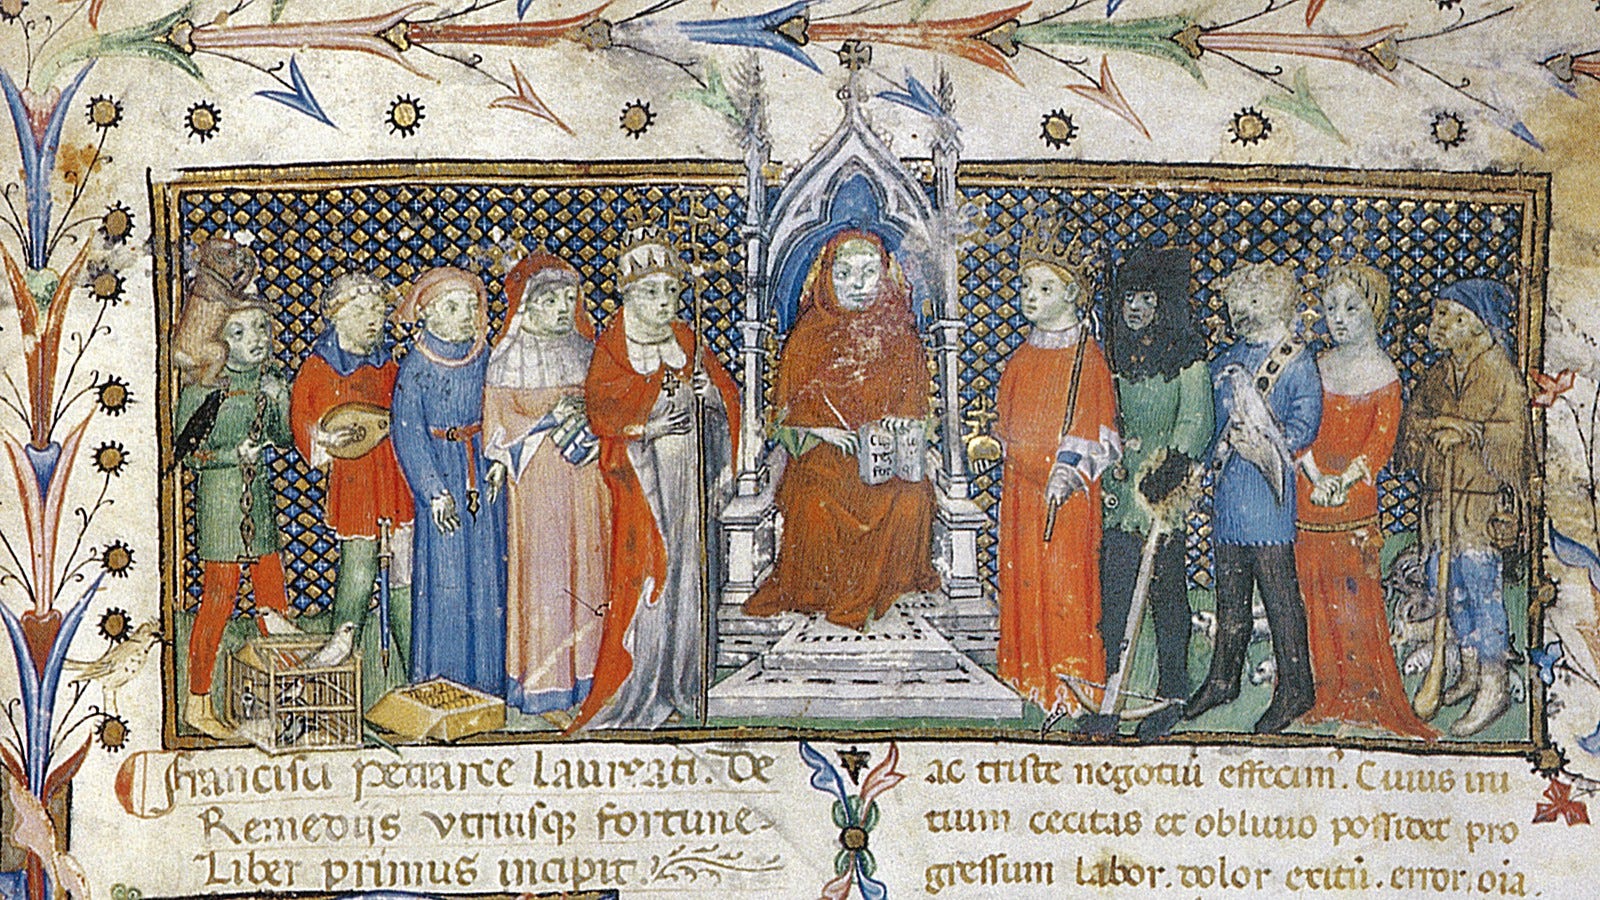 Francisci Petrarce laureati. De
Remediis utriusq; fortune
Liber primus incipit.
ac triste negotiū efficim̄. Cuius ini
tium cecitas et oblivio possidet pro
gressum labor. dolor exitū. error. oīa.